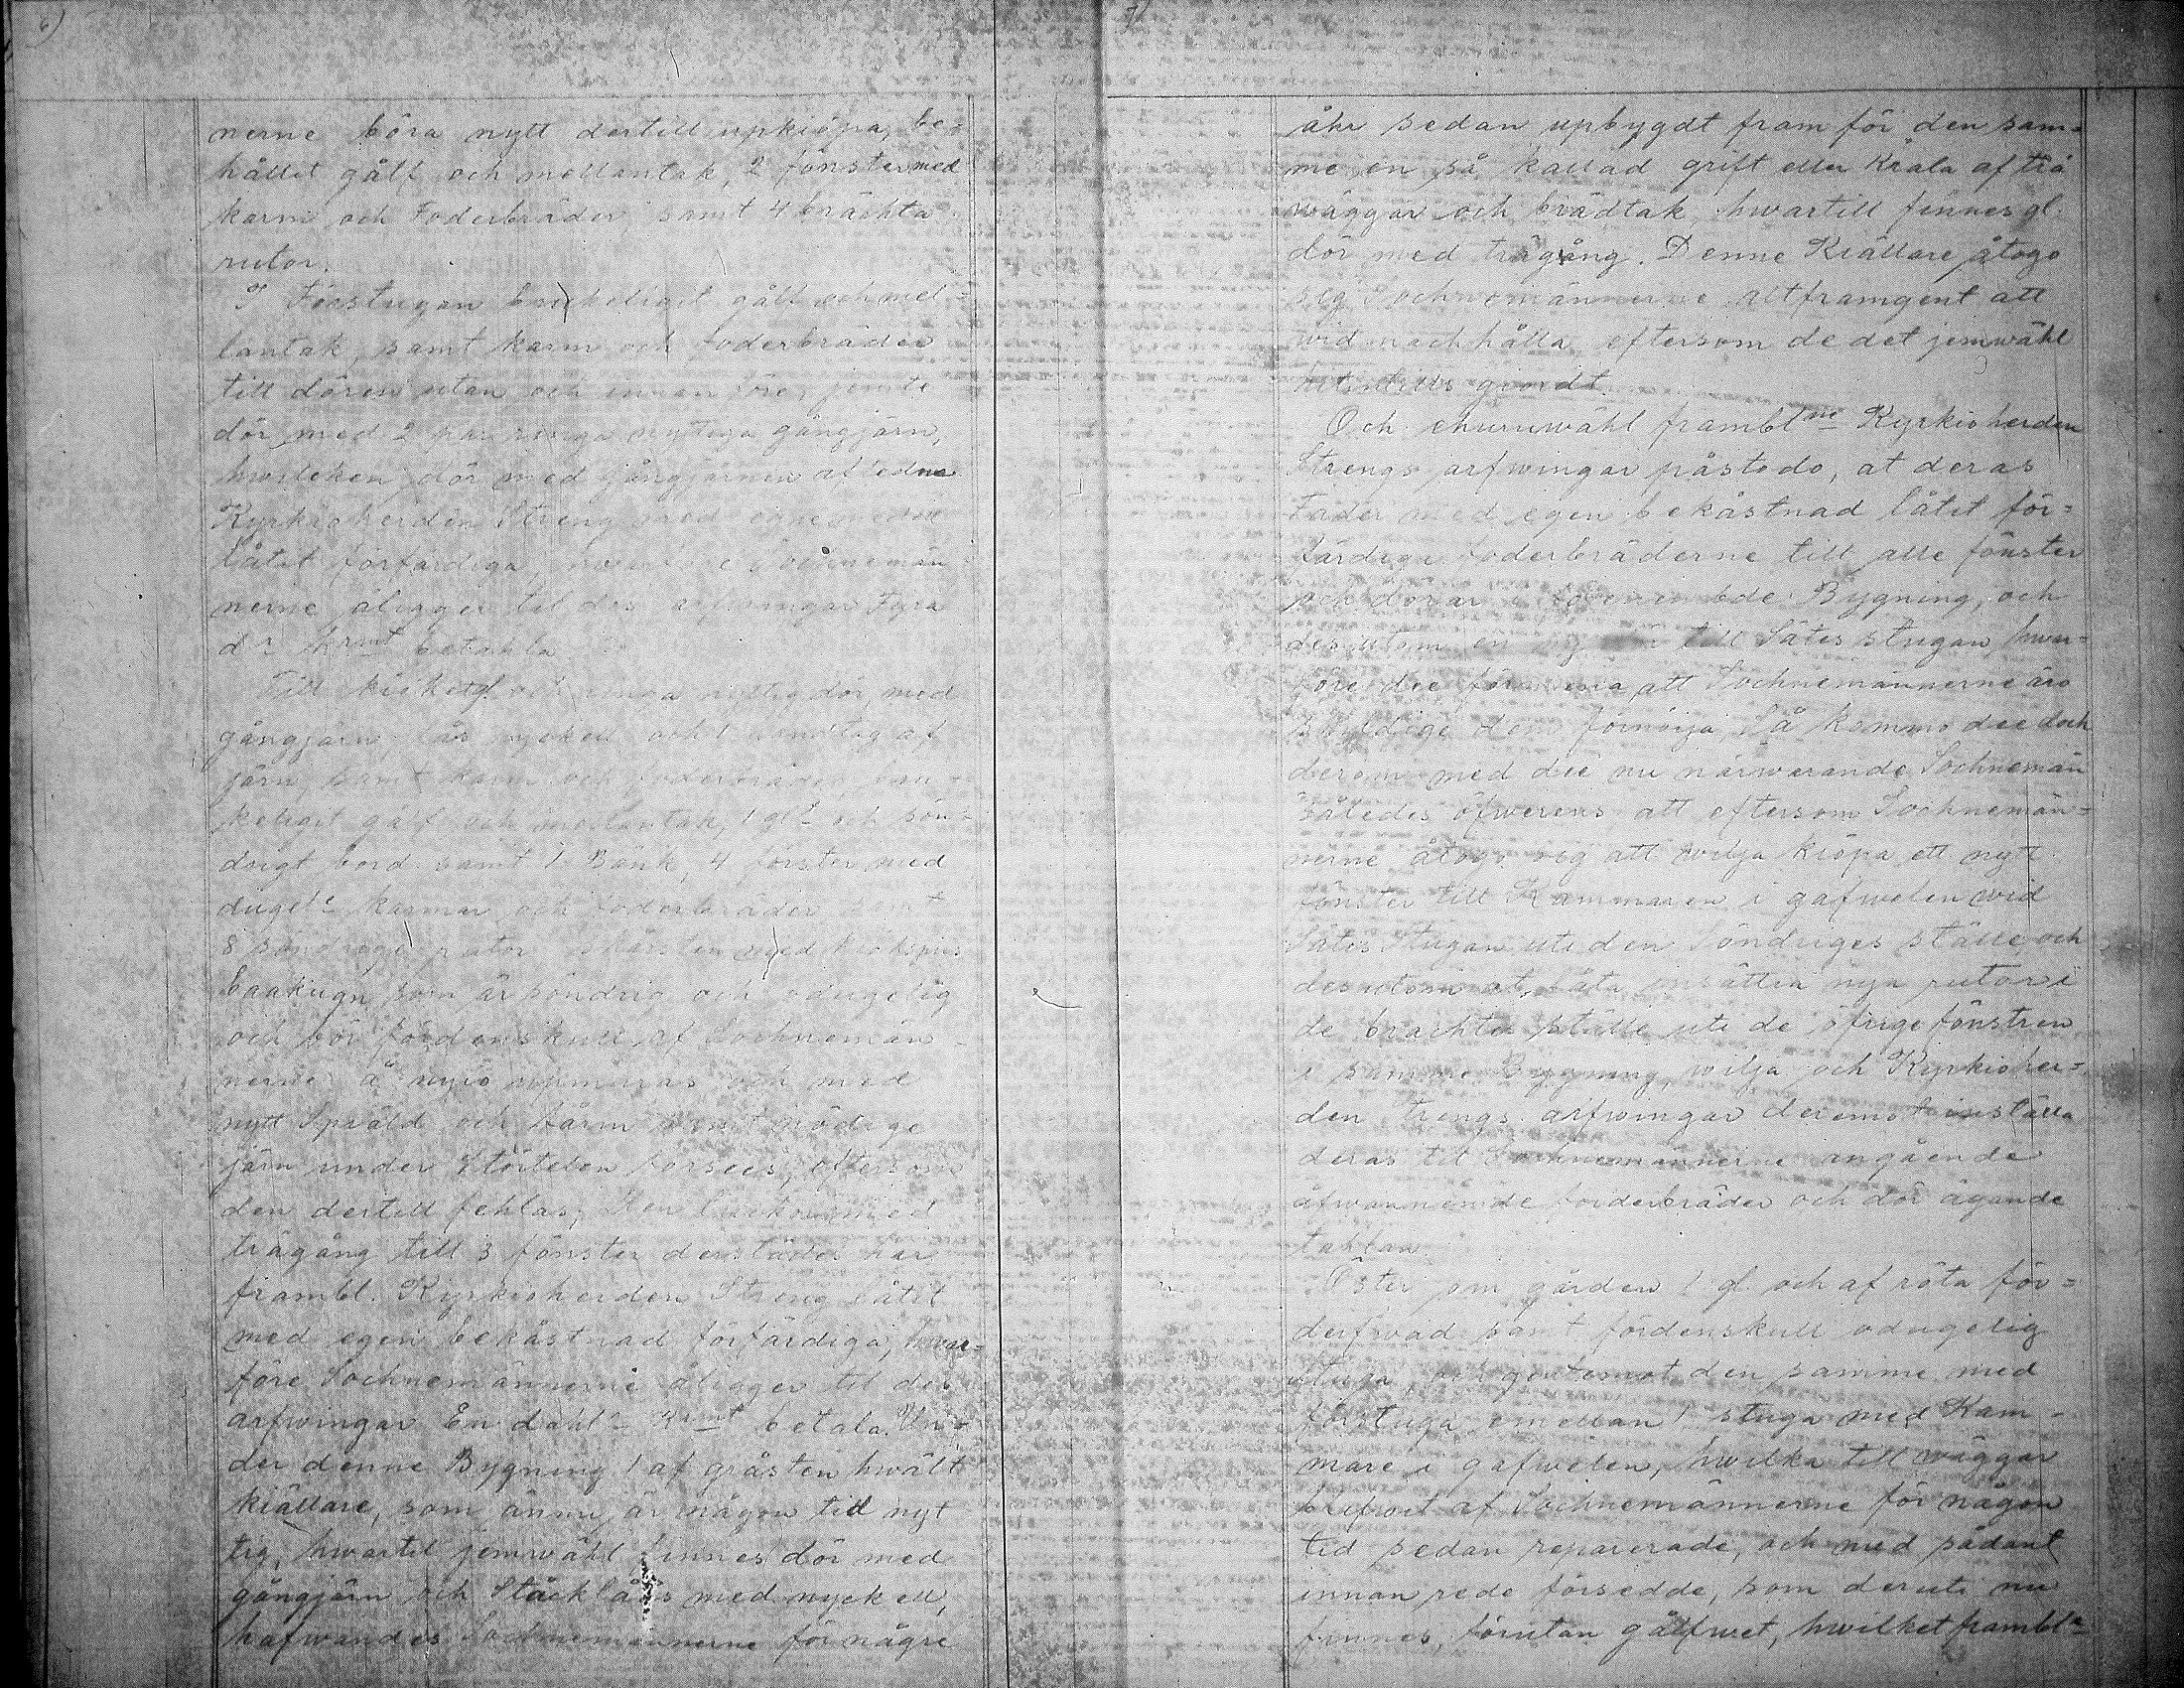 6)
nerne böra nytt dertill upkiöpa, be-
hållit gålf och mellantak, 2 fönster med
karm och Foderbräder samt 4 brächta
rutor.
I Förstugan brukeligit gålf och mel-
lantak, samt karm och foderbräder
till dören utan och innan före, jemte
dör med 2 par ringa nyttiga gångjärn,
hwilcken dör med gångjärnen afledne
Kyrkioherden Streng med egne medel
låtit förfärdiga, hwarföre Sochnemän
nerne åligger til des arfwingar Fyra
dr krmt betahla
Till kiöket gl. och ringa nyttig dör, med
gångjärn, lås nyckel och 1 handtag af
järn, samt karm och foderbräder, bru-
keligit gålf och mellantak, 1 glt och sön-
drigt bord samt 1 Bänk, 4 fönster med
dugelt karmar och foderbräder samt
8 söndrige rutor Skårsten med kiökspis
baakugn som är söndrig och odugelig
och bör fördenskull af Sochnemän-
nerne å nyio upmuras och med
nytt Spiäld och därm samt nödige
järn under Störtelen förses, eftersom
den dertill fehlas; Men luckor med
trägång till 3 fönster derstädes har
frambl. Kyrkioherden Streng låtit
med egen bekåstnad förfärdiga, hwar-
före Sochnemännerne åligger til des
arfwingar En dahlr Krmt betala. Un-
der denne Bygning 1 af gråsten hwält
kiällare, som ännu är någon till nyt
tig, hwartil jemwähl finnes dör med
gångjärn och Stäcklås med nyckell,
hafwandes Sochnemännerne för någre
7)
åhr sedan upbygdt fram för den sam-
me en så kallad grift eller Krala af trä
wäggar och brädtak, hwartill finnes gl.
dör med trägång. Denne Kiällare åtogo
sig Sochnemännerne altframgent att
wid macht hålla eftersom de det jemwähl
hitintills giordt.
Och ehuruwähl framblne Kyrkioherden
Strengs arfwingar påstodo, at deras
Fader med egen bekåstnad låtit för-
färdiga foderbräderne till alle fönster
och dörar i ofwenembde Bygning, och
desutom en ny dör till Sätes stugan, hwar-
före dee förmena att Sochnemännerne äro
skyldige dem förnöija, Så kommo dee doch
derom med die nu närwarande Sochnemän
således öfwerens att eftersom Sochnemän-
nerne åtogo sig att wilja kiöpa ett nytt
fönster till Kammaren i gafwelen wid
Sätes Stugan uti den Söndriges ställe och
desutom at låta insättia nya rutor i
de brachtes ställe uti de öfrige fönstren
i samme Bygning, wilja och Kyrkioher-
den trengs arfwingar deremot inställa
deras til Sochnemännerne angående
åfwannemde forderbräder och dör ägande
tahlan.
Öster om gården 1 gl och af röta för-
derfwad samt fördenskull odugelig
stuga, och gentemot den samme med
förstuga emellan 1 stuga med Kam-
mare i gafwelen, hwilka till wäggar
blifwit af Sochnemännerne för någon
tid sedan reparerade, och med sådant
innan rede försedde, som deruti nu
finnes, förutan gålfwet, hwilket frambln